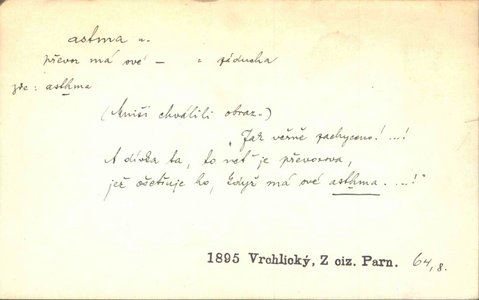 astma n.
převor má své — = záducha
zde: asthma
(Mniši chválili obraz.)
„Jak věrně zachyceno! ...!
A dívka ta, to neť je převorova,
jež ošetřuje ho, když má své asthma. ...!"
1895 Vrchlický, Z ciz. Parn. 64, 8.